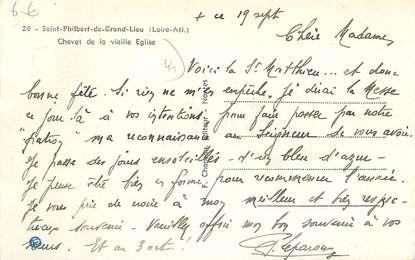 + ce 19 sept
26 - Saint-Philbert-de-Grand-Lieu (Loire-Atl.)
Chevet de la vieille Eglise
44
Chère Madame,
Voici la St Matthieu... et donc
bonne fête. Si rien ne m'en empêche, je dirai la Messe
ce jour là à vos intentions pour faire passer par notre
"patron" ma reconnaissance au Seigneur de vous avoir.
Je passe des jours ensoleillés - d'un bleu d'azur -
Je pense être bien en forme pour recommencer l'année.
Je vous prie de croire à mon meilleur et bien respec-
tueux souvenir - Veuillez offrir mon bon souvenir à vos
sœurs. Et au 3 oct!